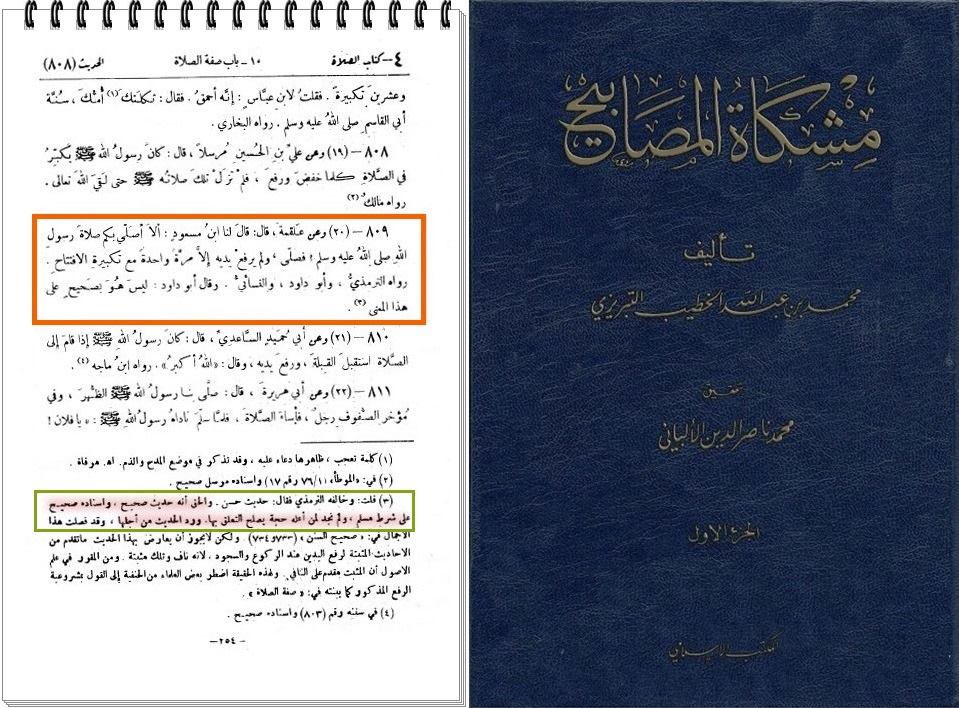 ٤ – كتاب الصلاة ١٠ – باب صفة الصلاة الحديث (٨٠٨)
وعشرينَ تكبيرةً . فقلتُ لابن عبَّاسٍ : إنَّه أحمقُ . فقال : ثكلتكَ (١) أمُّكَ ، سُنَّة
أبي القاسم صلى اللهُ عليه وسلم . رواه البخاري .
٨٠٨ – (١٩) وعن عليِّ بن الحُسينِ مُرسلاً ، قال : كانَ رسولُ اللهِ ﷺ يُكبِّرُ
في الصَّلاةِ كلما خفضَ ورفعَ ، فلم تزلْ تلكَ صلاتُه ﷺ حتى لقيَ اللهَ تعالى .
رواه مالكٌ (٢)
٨٠٩ – (٢٠) وعن علقمةَ ، قال : قالَ لنا ابنُ مسعودٍ : ألا أُصلِّي بكم صلاةَ رسولِ
اللهِ صلى اللهُ عليه وسلم ؟ فصلَّى ، ولم يرفعْ يديه إلاَّ مرَّةً واحدةً مع تكبيرةِ الافتتاحِ .
رواه الترمذيُّ ، وأبو داود ، والنسائيُّ . وقال أبو داود : ليسَ هوَ بصحيحٍ على
هذا المعنى (٣) .
٨١٠ – (٢١) وعن أبي حُميدٍ السَّاعديِّ ، قال : كانَ رسولُ اللهِ ﷺ إذا قامَ إلى
الصَّلاة استقبلَ القبلةَ ، ورفعَ يديه ، وقال : «اللهُ أكبرُ» . رواه ابنُ ماجه (٤) .
٨١١ – (٢٢) وعن أبي هريرةَ ، قال : صلَّى بنا رسولُ اللهِ ﷺ الظُّهرَ ، وفي
مُؤخرِ الصُّفوفِ رجلٌ ، فأساءَ الصَّلاةَ ، فلمَّا سلَّمَ ناداهُ رسولُ اللهِ ﷺ : «يا فلانُ !
(١) كلمة تعجب ، ظاهرها دعاء عليه ، وقد تذكر في موضع المدح والذم . اهـ مرقاة .
(٢) في: «الموطأ» (٧٦/١ رقم ١٧) واسناده مرسل صحيح .
(٣) قلت : وخالفه الترمذي فقال : حديث حسن . والحق أنه حديث صحيح ، واسناده صحيح
على شرط مسلم ، ولم نجد لمن أعله حجة يصلح التعلق بها. ورد الحديث من أجلها ، وقد فصلت هذا
الاجمال في : «صحيح السنن» (٧٣٣ و ٧٣٤) . ولكن لايجوز أن يعارض بهذا الحديث ماتقدم من
الاحاديث المثبتة لرفع اليدين عند الركوع والسجود ، لانه ناف وتلك مثبتة . ومن المقرر في علم
الاصول أن المثبت مقدم على النافي . ولهذه الحقيقة اضطر بعض العلماء من الحنفية إلى القول بمشروعية
الرفع المذكور كما بينته في: « صفة الصلاة » .
(٤) في سننه رقم (٨٠٣) واسناده صحيح .
– ٢٥٤ –
مشكاة المصابيح
تأليف
محمد بن عبد الله الخطيب التبريزي
تحقيق
محمد ناصر الدين الألباني
الجزء الأول
المكتب الإسلامي